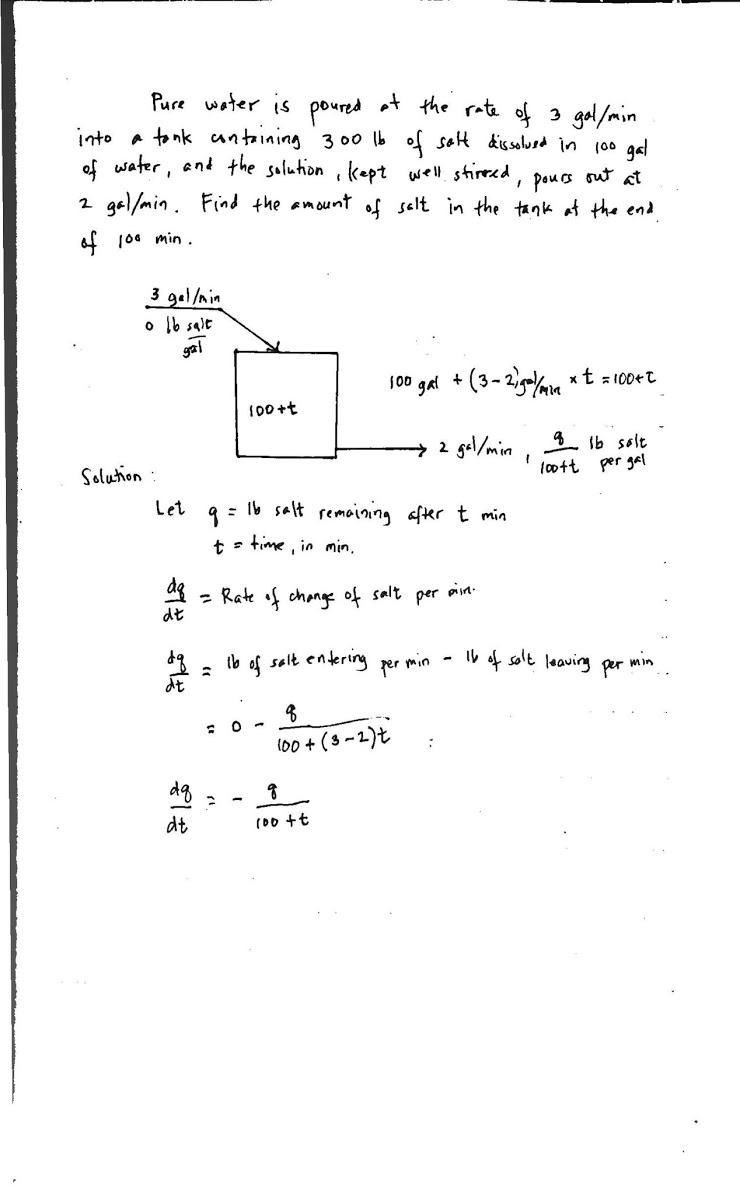 Pure water is poured at the rate of 3 gal/min
into a tank containing 300 lb of salt dissolved in 100 gal
of water, and the solution, kept well stirred, pours out at
2 gal/min. Find the amount of salt in the tank at the end
of 100 min.
3 gal/min
0 lb salt
gal
100 gal + (3-2)gal/min x t = 100+t
100+t
2 gal/min, q/100+t lb salt per gal
Solution :
Let q = lb salt remaining after t min
t = time, in min.
dq/dt = Rate of change of salt per min.
dq/dt = lb of salt entering per min - lb of salt leaving per min
= 0 - q/100+(3-2)t
dq/dt = - q/100+t